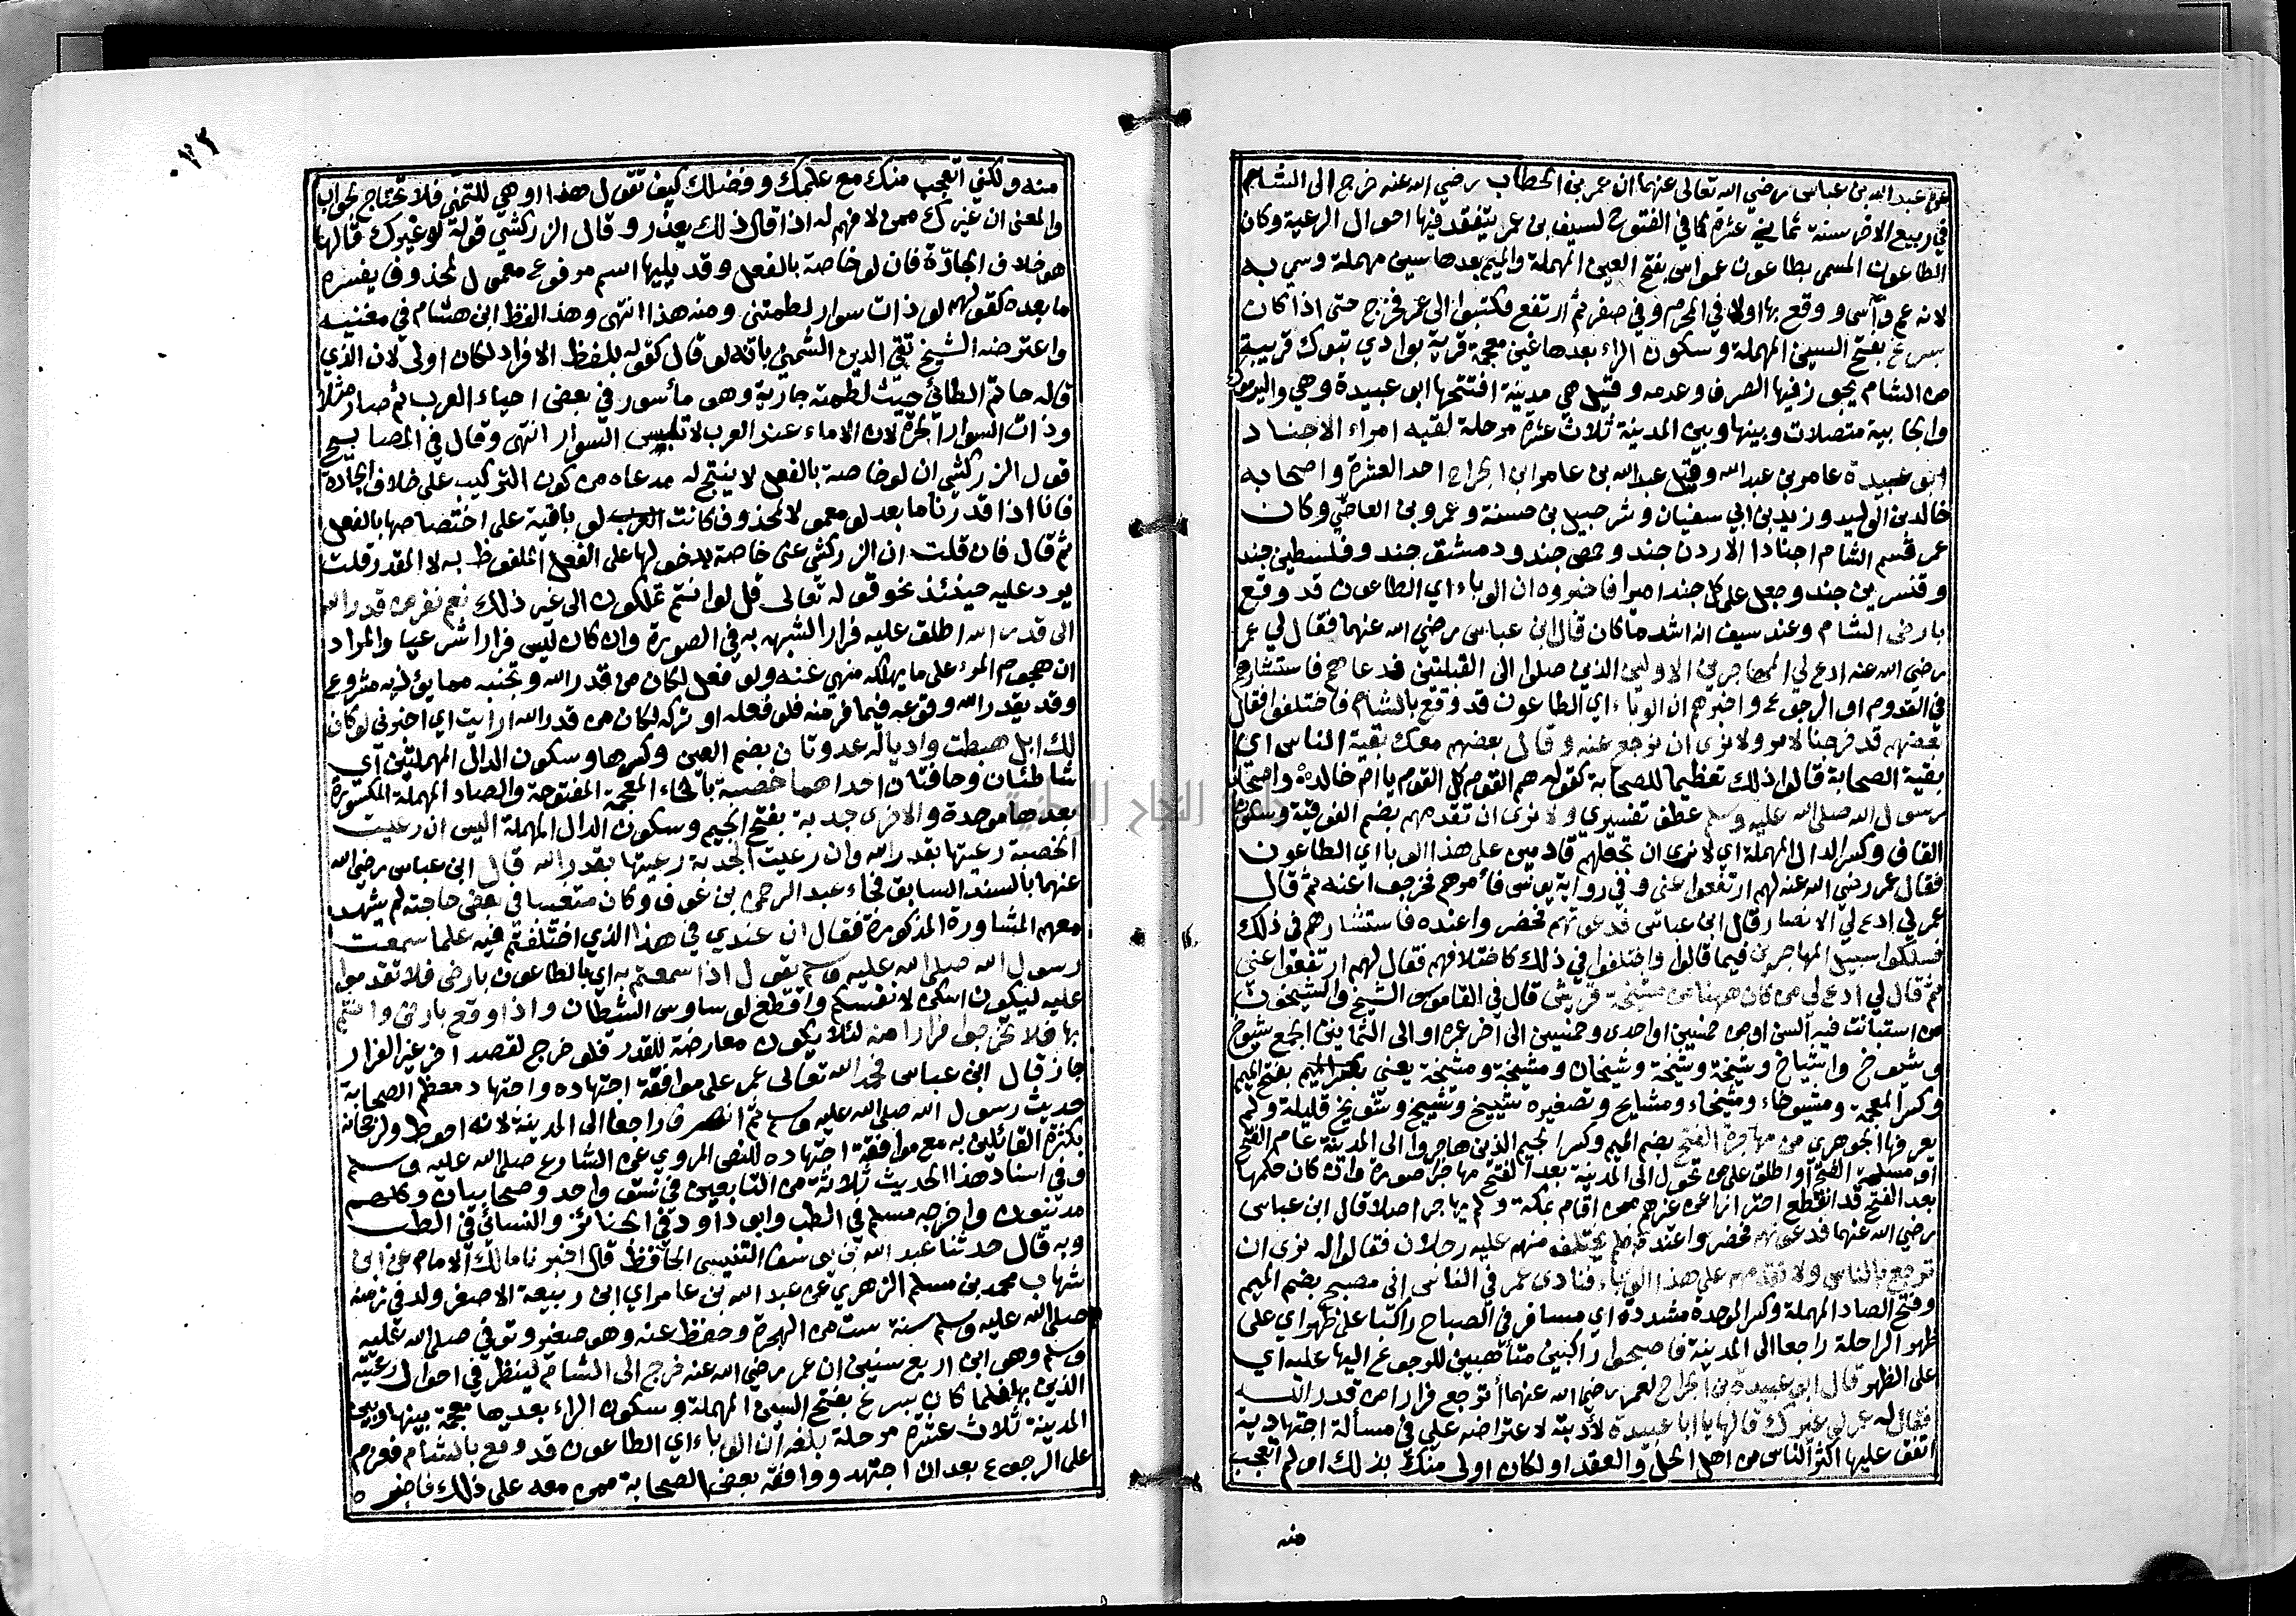 عن عبد الله بن عباس رضي الله تعالى عنهما ان عمر بن الخطاب رضي الله عنه خرج الى الشام
في ربيع الاخر سنة ثماني عشرة كما في الفتوح لسيف بن عمر يتفقد فيها احوال الرعية وكان
الطاعون المسمى بطاعون عمواس بفتح العين المهملة والميم بعدها سين مهملة وسمي به
لانه عم وآسى ووقع بها اولا في المحرم وفي صفر ثم ارتفع فكتبوا الى عمر فخرج حتى اذا كان
بسرغ بفتح السين المهملة وسكون الراء بعدها غين معجمة قرية بوادي تبوك قريبة
من الشام يجوز فيها الصرف وعدمه وقيل هي مدينة افتتحها ابو عبيدة وهي واليرموك
والجابية متصلات وبينها وبين المدينة ثلاث عشرة مرحلة لقيه امراء الاجناد
ابو عبيدة عامر بن عبد الله وقيل عبد الله بن عامر ابن الجراح احد العشرة واصحابه
خالد بن الوليد وزيد بن ابي سفيان وشرحبيل بن حسنة وعمرو بن العاص وكان
عمر قسم الشام اجنادا الاردن جند وحمص جند ودمشق جند وفلسطين جند
وقنسرين جند وجعل على كل جند اميرا فاخبروه ان الوباء اي الطاعون قد وقع
بارض الشام وعند سيف انه اشد ما كان قال ابن عباس رضي الله عنهما فقال لي عمر
رضي الله عنه ادع لي المهاجرين الاولين الذين صلوا الى القبلتين فدعاهم فاستشارهم
في القدوم او الرجوع واخبرهم ان الوباء اي الطاعون قد وقع بالشام فاختلفوا فقال
بعضهم قد خرجنا لامر ولا نرى ان نرجع عنه وقال بعضهم معك بقية الناس اي
بقية الصحابة قالوا ذلك تعظيما للصحابة كقوله هم القوم كل القوم يا ام خالد واصحاب
رسول الله صلى الله عليه وسلم عطف تفسيري ولا نرى ان تقدمهم بضم الفوقية وسكون
القاف وكسر الدال المهملة اي لا نرى ان تجعلهم قادمين على هذا الوبا اي الطاعون
فقال عمر رضي الله عنه لهم ارتفعوا عني وفي رواية يونس فأمرهم فخرجوا عنه ثم قال
عمر لي ادع لي الانصار قال ابن عباس فدعوتهم فحضروا عنده فاستشارهم في ذلك
فسلكوا سبيل المهاجرين فيما قالوا واختلفوا في ذلك كاختلافهم فقال لهم ارتفعوا عني
ثم قال لي ادع لي من كان ههنا من مشيخة قريش قال في القاموس الشيخ والشيخون
من استبانت فيه السن او من خمسين او احدى وخمسين الى اخر عمره او الى الثمانين الجمع شيوخ
وشيوخ واشياخ وشيخة وشيخة وشيخان ومشيخة ومشيخة يعني بكسر الميم بفتح الميم
وكسر المعجمة ومشيوخاء ومشيخاء ومشايخ وتصغيره شييخ وشييخ وشويخ قليلة ولم
يعرفها الجوهري من مهاجرة الفتح بضم الميم وكسر الجيم الذين هاجروا الى المدينة عام الفتح
او مسلمة الفتح او اطلق على من تحول الى المدينة بعد الفتح مهاجرا صورة وان كان حكمها
بعد الفتح قد انقطع احترازا عن غيرهم ممن اقام بمكة ولم يهاجر اصلا قال ابن عباس
رضي الله عنهما فدعوتهم فحضروا عنده فلم يختلف منهم عليه رجلان فقالوا له نرى ان
ترجع بالناس ولا تقدمهم على هذا الوباء فنادى عمر في الناس اني مصبح بضم الميم
وفتح الصاد المهملة وكسر الموحدة مشددة اي مسافر في الصباح راكبا على ظهر اي على
ظهر الراحلة راجعا الى المدينة فاصبحوا راكبين متأهبين للرجوع اليها عليه اي
على الظهر قال ابو عبيدة بن الجراح لعمر رضي الله عنهما أترجع فرارا من قدر الله
فقال له عمر لو غيرك قالها يا ابا عبيدة لأدبته لاعتراضه علي في مسألة اجتهادية
اتفق عليها اكثر الناس من اهل الحل والعقد او لكان اولى منك بذلك او لم اتعجب
منه
منه ولكني اتعجب منك مع علمك وفضلك كيف تقول هذا او هي للتمني فلا تحتاج لجواب
والمعنى ان غيرك ممن لا فهم له اذا قال ذلك يعذر وقال الزركشي قوله لو غيرك قالها
هو خلاف الجادة فان لو خاصة بالفعل وقد يليها اسم مرفوع معمول لمحذوف يفسره
ما بعده كقولهم لو ذات سوار لطمتني ومنه هذا انتهى وهذا لفظ ابن هشام في مغنيه
واعترضه الشيخ تقي الدين الشمني بانه لو قال كقوله بلفظ الافراد لكان اولى لان الذي
قاله حاتم الطائي حيث لطمته جارية وهو مأسور في بعض احياء العرب ثم صار مثلا
وذات السوار الحرة لان الاماء عند العرب لا تلبس السوار انتهى وقال في المصابيح
قول الزركشي ان لو خاصة بالفعل لا ينتج له مدعاه من كون التركيب على خلاف الجادة
فانا اذا قدرنا ما بعد لو معمولا لمحذوف كانت لو باقية على اختصاصها بالفعل
ثم قال فان قلت ان الزركشي عنى خاصة بدخولها على الفعل الملفوظ به لا المقدر قلت
يرد عليه حينئذ نحو قوله تعالى قل لو انتم تملكون الى غير ذلك نعم نفر من قدر الله
الى قدر الله اطلق عليه فرارا لشبهه به في الصورة وان كان ليس فرارا شرعيا والمراد
ان هجوم المرء على ما يهلكه منهي عنه ولو فعل لكان من قدر الله وتجنبه مما يؤذيه مشروع
وقد يقدر الله وقوعه فيما فر منه فلو فعله او تركه لكان من قدر الله ارايت اي اخبرني لو كان
لك ابل هبطت واديا له عدوتان بضم العين وكسرها وسكون الدال المهملتين اي
شاطئان وحافتان احداهما خصبة بالخاء المعجمة المفتوحة والصاد المهملة المكسورة
بعدها موحدة والاخرى جدبة بفتح الجيم وسكون الدال المهملة اليس ان رعيت
الخصبة رعيتها بقدر الله وان رعيت الجدبة رعيتها بقدر الله قال ابن عباس رضي الله
عنهما بالسند السابق فجاء عبد الرحمن بن عوف وكان متغيبا في بعض حاجته لم يشهد
معهم المشاورة المذكورة فقال ان عندي في هذا الذي اختلفتم فيه علما سمعت
رسول الله صلى الله عليه وسلم يقول اذا سمعتم به اي بالطاعون بارض فلا تقدموا
عليه ليكون اسكن لانفسكم واقطع لوساوس الشيطان واذا وقع بارض وانتم
بها فلا تخرجوا فرارا منه لئلا يكون معارضة للقدر فلو خرج لقصد اخر غير الفرار
جاز قال ابن عباس فحمد الله تعالى عمر على موافقة اجتهاده واجتهاد معظم الصحابة
حديث رسول الله صلى الله عليه وسلم ثم انصرف راجعا الى المدينة لانه احوط ولرجحانه
بكثرة القائلين به مع موافقة اجتهاده للنص المروي عن الشارع صلى الله عليه وسلم
وفي اسناد هذا الحديث ثلاثة من التابعين في نسق واحد وصحابيان وكلهم
مدنيون واخرجه مسلم في الطب وابو داود في الجنائز والنسائي في الطب
وبه قال حدثنا عبد الله بن يوسف التنيسي الحافظ قال اخبرنا مالك الامام عن ابن
شهاب محمد بن مسلم الزهري عن عبد الله بن عامر اي ابن ربيعة الاصغر ولد في زمنه
صلى الله عليه وسلم سنة ست من الهجرة وحفظ عنه وهو صغير وتوفي صلى الله عليه
وسلم وهو ابن اربع سنين ان عمر رضي الله عنه خرج الى الشام لينظر في احوال رعيته
الذين بها فلما كان بسرغ بفتح السين المهملة وسكون الراء بعدها معجمة بينها وبين
المدينة ثلاث عشرة مرحلة بلغه ان الوباء اي الطاعون قد وقع بالشام فعزم
على الرجوع بعد ان اجتهد ووافقه بعض الصحابة ممن معه على ذلك فاخبره